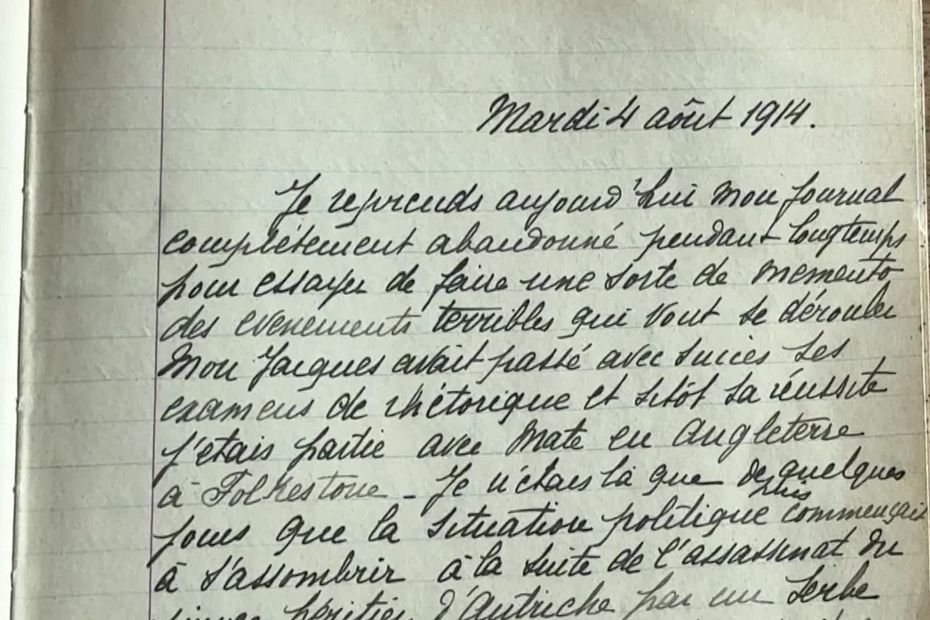 Mardi 4 aôut 1914.
Je reprends aujourd'hui mon journal
complètement abandonné pendant longtemps
pour essayer de faire une sorte de memento
des evenements terribles qui vont se dérouler
Mon Jacques avait passé avec succes ses
examens de rhétorique et sitôt sa réussite
j'etais partie avec Mate en Angleterre
à Folkestone - Je n'étais là que depuis quelques
jours que la situation politique commençait
à s'assombrir à la suite de l'assassinat du
prince héritier d'Autriche par un Serbe